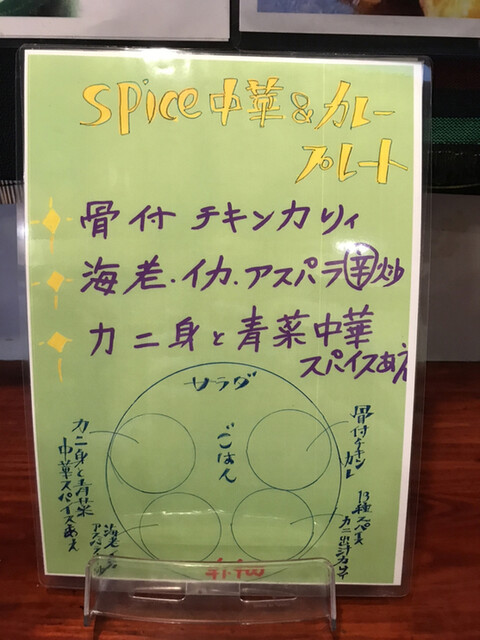 spice中華&カレー
プレート
骨付チキンカリィ
海老・イカ・アスパラ辛炒
カニ身と青菜中華
スパイスあえ
サラダ
ごはん
カニ身と青菜
中華スパイスあえ
骨付チキン
カレー
13種スパイス
海老・イカ
アスパラ